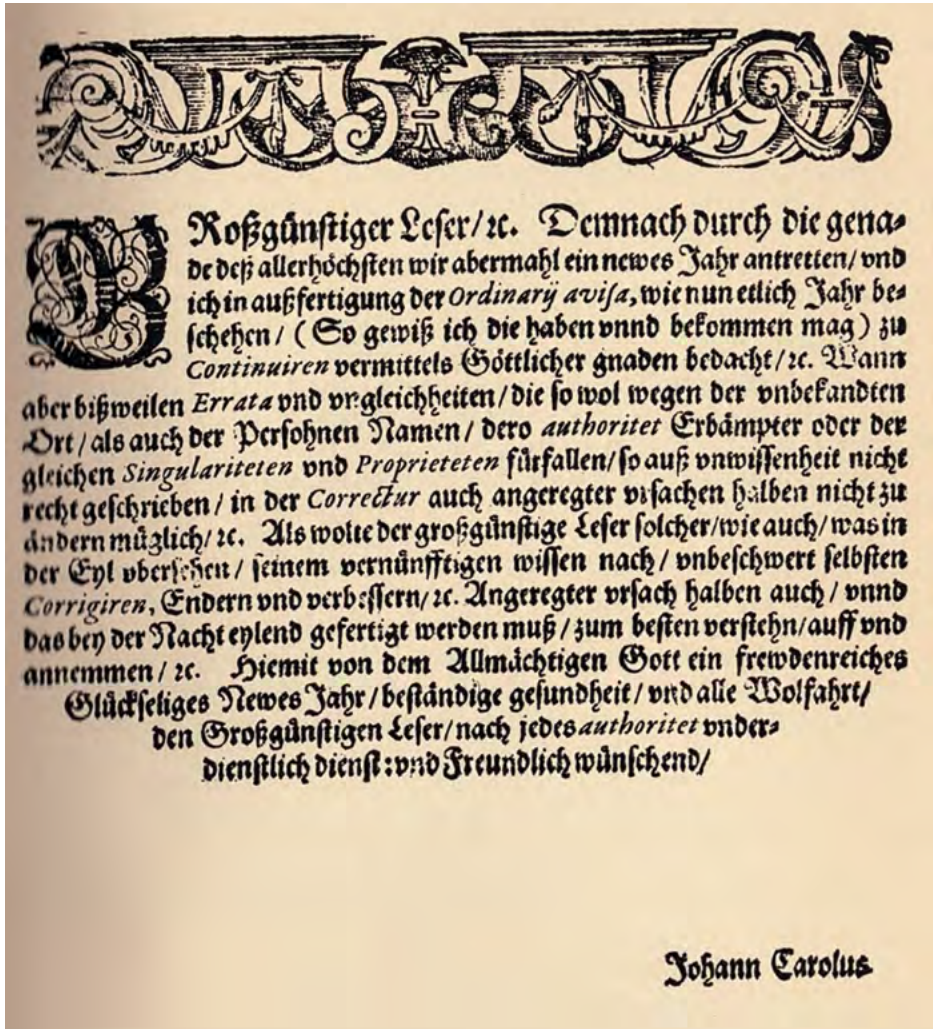 GRoßgünstiger Leser/ ꝛc. Demnach durch die gena⸗
de deß allerhöchsten wir abermahl ein newes Jahr antretten/ vnd
ich in außfertigung der Ordinarij avisa, wie nun etlich Jahr be⸗
schehen/ (So gewiß ich die haben vnnd bekommen mag) zu
Continuiren vermittels Göttlicher gnaden bedacht/ ꝛc. Wann
aber bißweilen Errata vnd vngleichheiten/ die so wol wegen der vnbekandten
Ort/ als auch der Persohnen Namen/ dero authoritet Erbämpter oder der
gleichen Singulariteten vnd Proprieteten fürfallen/ so auß vnwissenheit nicht
recht geschrieben/ in der Correctur auch angeregter vrsachen halben nicht zu
ändern müglich/ ꝛc. Als wolte der großgünstige Leser solcher/ wie auch/ was in
der Eyl vbersehen/ seinem vernünfftigen wissen nach/ vnbeschwert selbsten
Corrigiren, Endern vnd verbessern/ ꝛc. Angeregter vrsach halben auch/ vnnd
das bey der Nacht eylend gefertigt werden muß/ zum besten verstehn/ auff vnd
annemmen/ ꝛc. Hiemit von dem Allmächtigen Gott ein frewdenreiches
Glückseliges Newes Jahr/ beständige gesundheit/ vnd alle Wolfahrt/
den Großgünstigen Leser/ nach jedes authoritet vnder⸗
dienstlich dienst: vnd Freundlich wünschend/
Johann Carolus